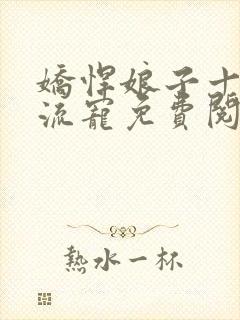 嬌悍娘子十
流寵免費閱
熱水一杯